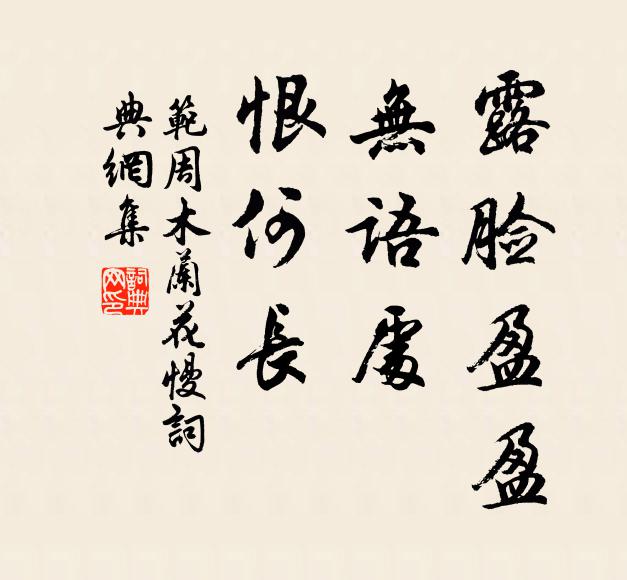 露脸盈盈
無語處
恨何長
範周木蘭花慢詞
典網集
詞典網印